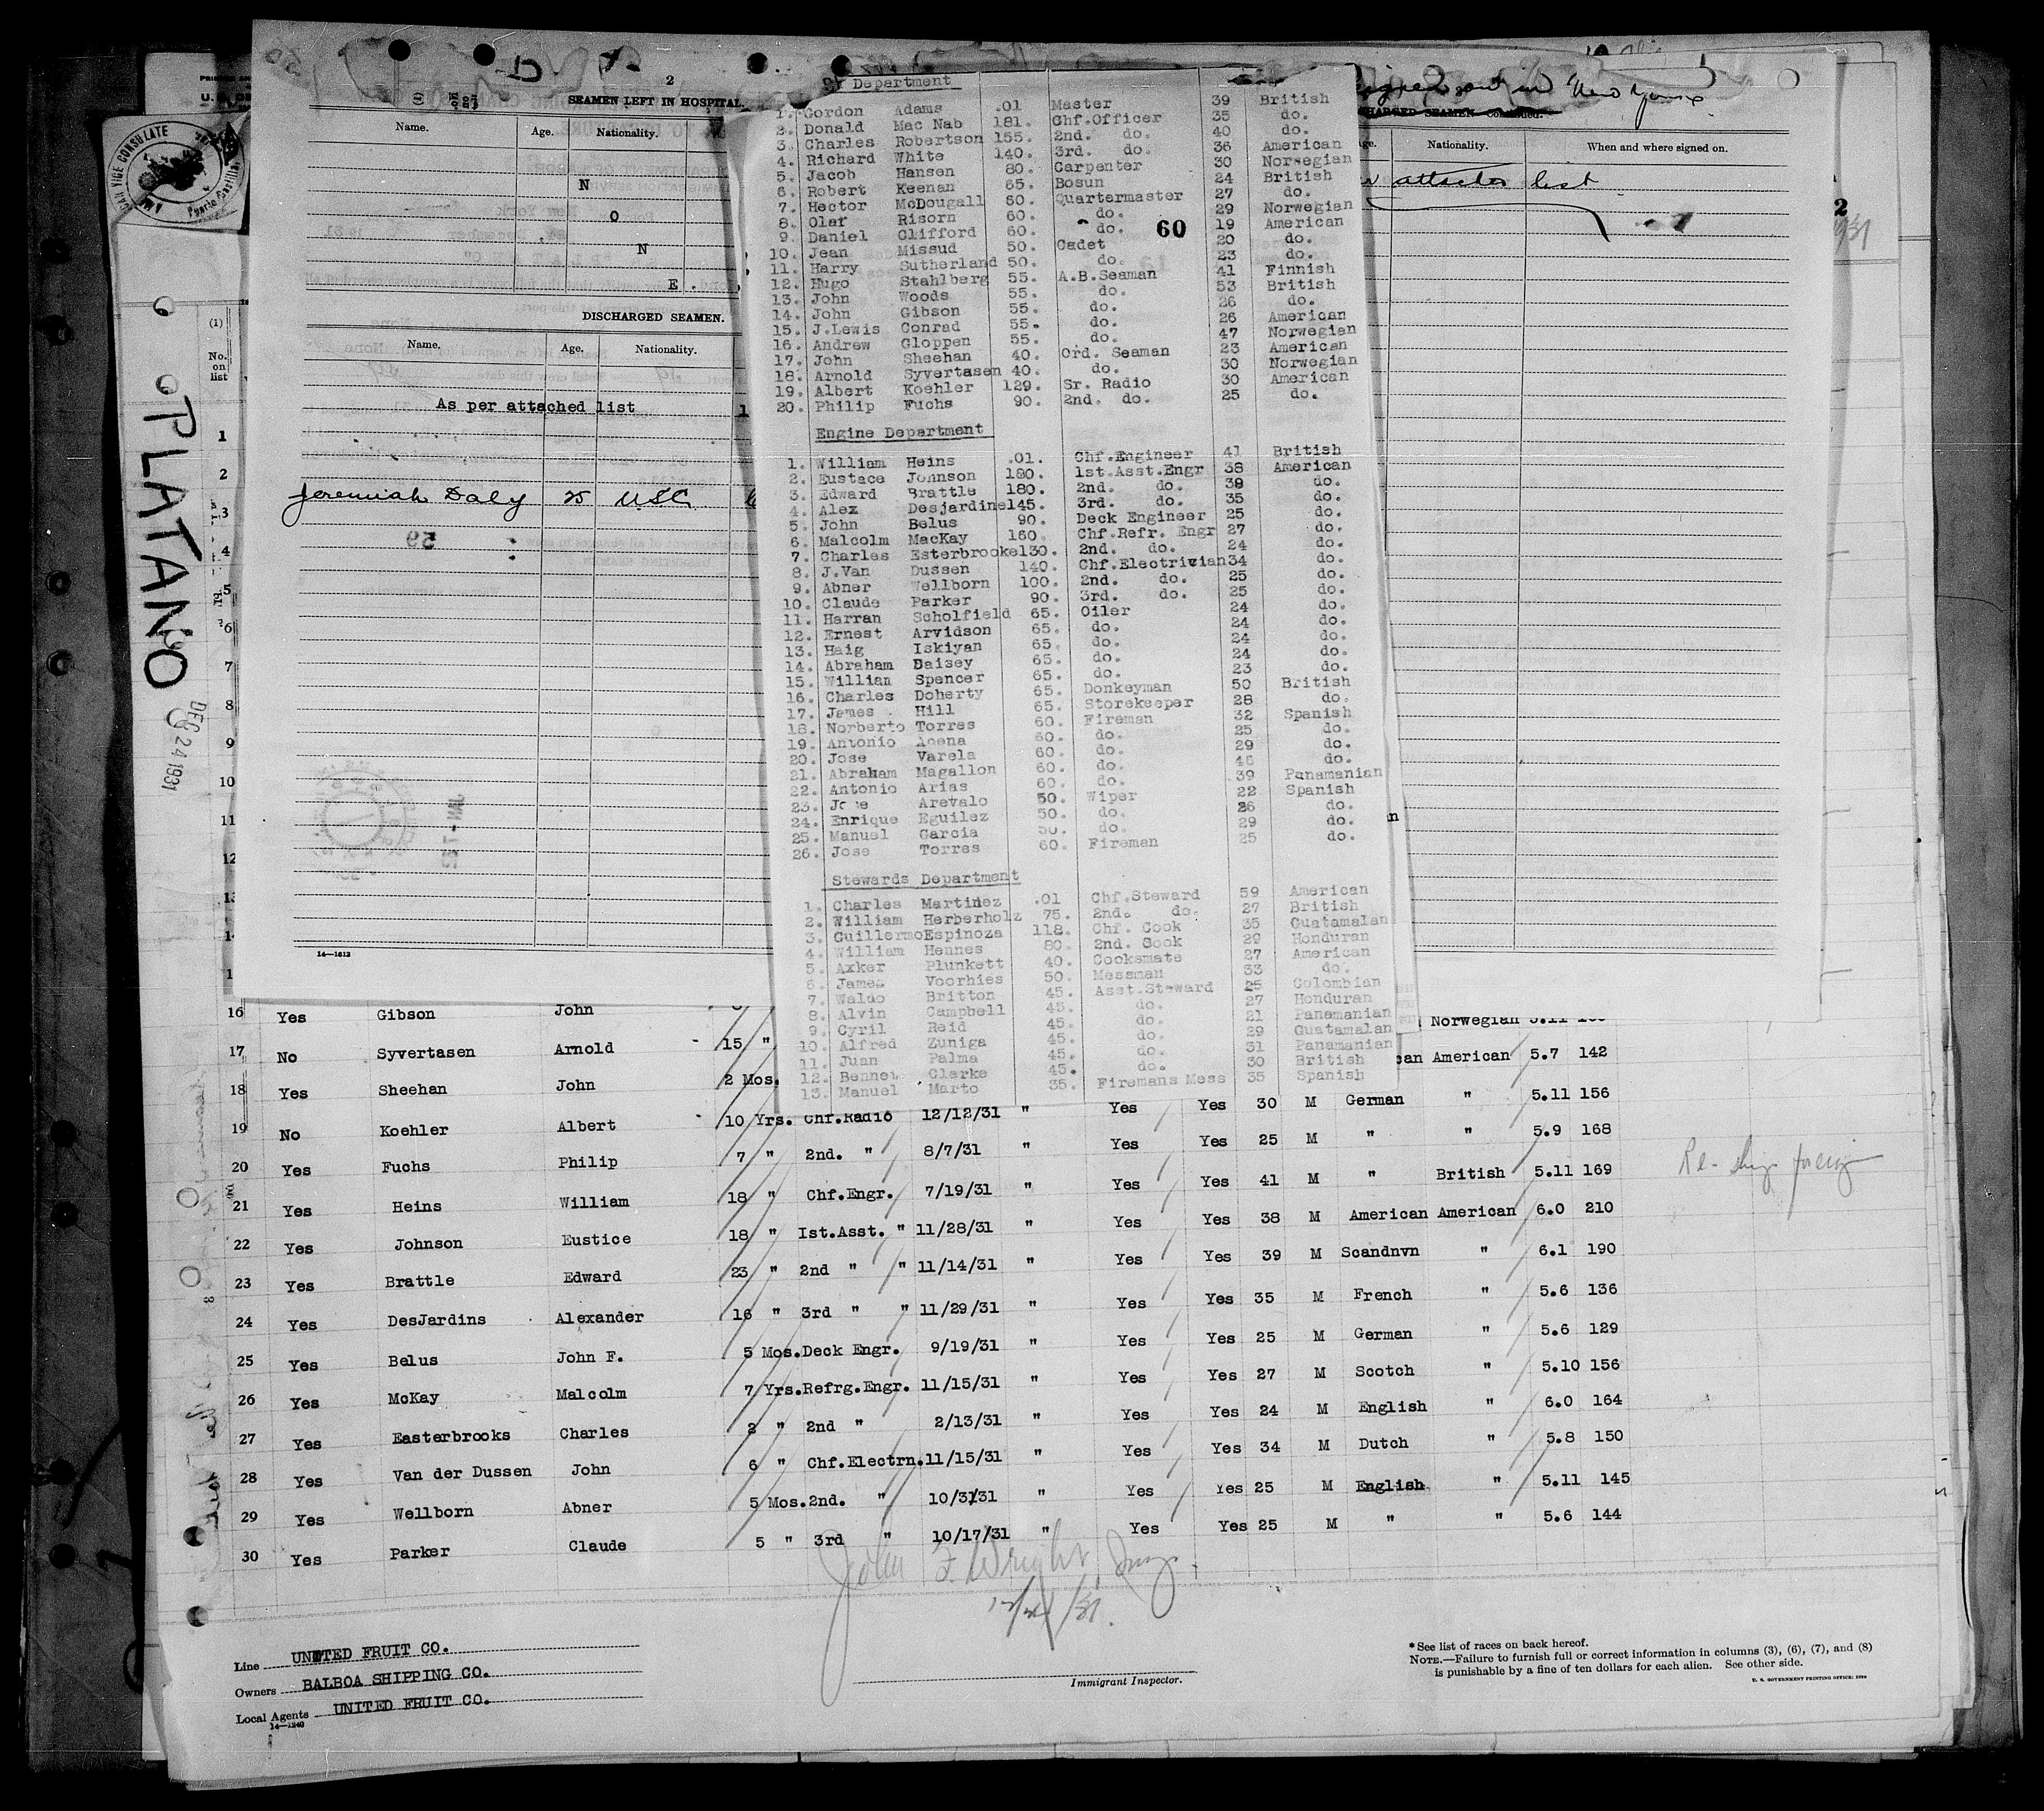 2
SEAMEN LEFT IN HOSPITAL.
Name. Age. Nationality.
N
O
N
E.
DISCHARGED SEAMEN.
Name. Age. Nationality.
As per attached list
Jeremiah Daly 25 U.S.C.
59
14—1613
PLATANO
DEC 24 1931
Department
1. Gordon Adams .01 Master 39 British
2. Donald Mac Nab 181. Chf.Officer 35 do.
3. Charles Robertson 155. 2nd. do. 40 do.
4. Richard White 140. 3rd. do. 36 American
5. Jacob Hansen 80. Carpenter 30 Norwegian
6. Robert Keenan 65. Bosun 24 British
7. Hector McDougall 60. Quartermaster 27 do.
8. Olaf Risorn 60. do. 29 Norwegian
9. Daniel Clifford 60. do. 19 American
60
10. Jean Missud 50. Cadet 20 do.
11. Harry Sutherland 50. do. 23 do.
12. Hugo Stahlberg 55. A.B.Seaman 41 Finnish
13. John Woods 55. do. 53 British
14. John Gibson 55. do. 26 do.
15. J.Lewis Conrad 55. do. 26 American
16. Andrew Gloppen 55. do. 47 Norwegian
17. John Sheehan 40. Ord. Seaman 23 American
18. Arnold Syvertasen 40. do. 30 Norwegian
19. Albert Koehler 129. Sr. Radio 30 American
20. Philip Fuchs 90. 2nd. do. 25 do.
Engine Department
1. William Heins .01. Chf.Engineer 41 British
2. Eustace Johnson 180. 1st.Asst.Engr 38 American
3. Edward Brattle 180. 2nd. do. 39 do.
4. Alex Desjardine145. 3rd. do. 35 do.
5. John Belus 90. Deck Engineer 25 do.
6. Malcolm MacKay 160. Chf.Refr. Engr 27 do.
7. Charles Esterbrooke130. 2nd. do. 24 do.
8. J.Van Dussen 140. Chf.Electrician34 do.
9. Abner Wellborn 100. 2nd. do. 25 do.
10. Claude Parker 90. 3rd. do. 25 do.
11. Harran Scholfield 65. Oiler 24 do.
12. Ernest Arvidson 65. do. 24 do.
13. Haig Iskiyan 65. do. 24 do.
14. Abraham Daisey 65. do. 24 do.
15. Willian Spencer 65. do. 23 do.
16. Charles Doherty 65. Donkeyman 50 British
17. James Hill 65. Storekeeper 28 do.
18. Norberto Torres 60. Fireman 32 Spanish
19. Antonio 60. do. 25 do.
20. Jose Varela 60. do. 29 do.
21. Abraham Magallon 60. do. do.
22. Antonio Arias 60. do. 39 Panamanian
23. Arevalo 50. Wiper 22 Spanish
24. Enrique Eguilez 50. do. 26 do.
25. Manuel Garcia 50. do. 29 do.
26. Jose Torres 60. Fireman 25 do.
Stewards Department
1. Charles Martinez .01 Chf.Steward 59 American
2. William Herberholz 75. 2nd. do. 27 British
3. GuillermoEspinoza 118. Chf. Cook 35 Guatamalan
4. William Hennes 80. 2nd. Cook 29 Honduran
5. Axker Plunkett 40. Cooksmate 27 American
6. James Voorhies 50. Messman 33 do.
7. Waldo Britton 45. Asst.Steward 25 Colombian
8. Alvin Campbell 45. do. 27 Honduran
9. Cyril Reid 45. do. 21 Panamanian
10. Alfred Zuniga 45. do. 29 Guatamalan
11. Juan Palma 45. do. 31 Panamanian
12. Bennet Clarke 45. do. 30 British
13. Manuel Marto 35. Firemans Mess 35 Spanish
in New York
CHARGED SEAMEN—Continued.
Nationality. When and where signed on.
attached list
(1)
No. on list
1
2
3
4
5
6
7
8
9
10
11
12
16 Yes Gibson John
Norwegian
17 No Syvertasen Arnold 15 " American 5.7 142
18 Yes Sheehan John 2 Mos.
19 No Koehler Albert 10 Yrs. Chf.Radio 12/12/31 " Yes Yes 30 M German " 5.11 156
20 Yes Fuchs Philip 7 " 2nd. " 8/7/31 " Yes Yes 25 M " " 5.9 168
21 Yes Heins William 18 " Chf.Engr. 7/19/31 " Yes Yes 41 M " British 5.11 169
22 Yes Johnson Eustice 18 " Ist.Asst. " 11/28/31 " Yes Yes 38 M American American 6.0 210
23 Yes Brattle Edward 23 " 2nd " " 11/14/31 " Yes Yes 39 M Scandnvn " 6.1 190
24 Yes DesJardins Alexander 16 " 3rd " " 11/29/31 " Yes Yes 35 M French " 5.6 136
25 Yes Belus John F. 5 Mos.Deck Engr. 9/19/31 " Yes Yes 25 M German " 5.6 129
26 Yes McKay Malcolm 7 Yrs.Refrg.Engr. 11/15/31 " Yes Yes 27 M Scotch " 5.10 156
27 Yes Easterbrooks Charles 2 " 2nd " 2/13/31 " Yes Yes 24 M English " 6.0 164
28 Yes Van der Dussen John 6 " Chf.Electrn.11/15/31 " Yes Yes 34 M Dutch " 5.8 150
29 Yes Wellborn Abner 5 Mos.2nd. " 10/31/31 " Yes Yes 25 M English " 5.11 145
30 Yes Parker Claude 5 " 3rd " 10/17/31 " Yes Yes 25 M " " 5.6 144
John F. Wright
12/24/31.
Immigrant Inspector.
Line UNITED FRUIT CO.
Owners BALBOA SHIPPING CO.
Local Agents UNITED FRUIT CO.
14—1240
* See list of races on back hereof.
NOTE.—Failure to furnish full or correct information in columns (3), (6), (7), and (8)
is punishable by a fine of ten dollars for each alien. See other side.
U. S. GOVERNMENT PRINTING OFFICE